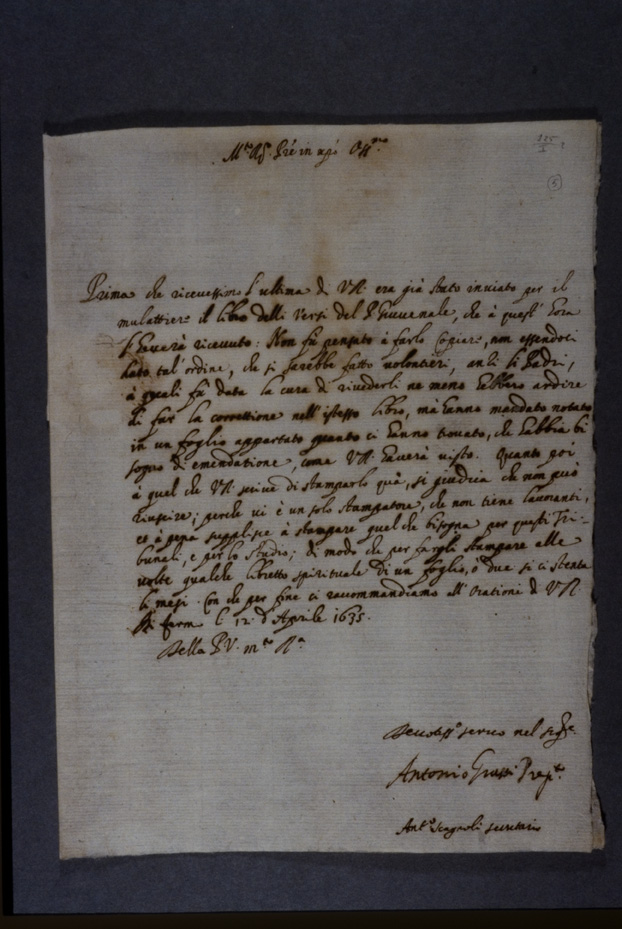 M.to R.do P.re in xpo Oss.mo
225
I
5
Prima che ricevessimo l'ultima di V.R. era già stato inviato per il
mulattiere il libro delli Versi del P. Giuvenale, che à quest' hora
l'haverà ricevuto: Non fù pensato à farlo copiare, non essendoci
dato tal'ordine, che si sarebbe fatto volontieri, anzi li Padri,
à quali fù data la cura di rivederli ne meno hebbero ardire
di far la correttione nell'istesso libro, mà hanno mandato notato
in un foglio appartato quanto ci hanno trovato, che habbia bi
sogno di emendatione, come V.R. haverà visto. Quanto poi
à quel che V.R. scrive di stamparlo quà, si giudica che non può
riuscire; perche vi è un solo stampatore, che non tiene lavoranti,
et à pena supplisce à stampare quel che bisogna per questi Tri-
bunali, e per lo studio; di modo che per fargli stampare alle
volte qualche libretto spirituale di un foglio, ò due si ci stenta
li mesi. Con che per fine ci raccommandiamo all' Oratione di V.R.
Di Fermo li 12 d'Aprile 1635.
Della P.V. m.to R.da
Devotiss.o servo nel Sig.re
Antonio Grassi Prep.to
Ant.o Scagnoli secretario